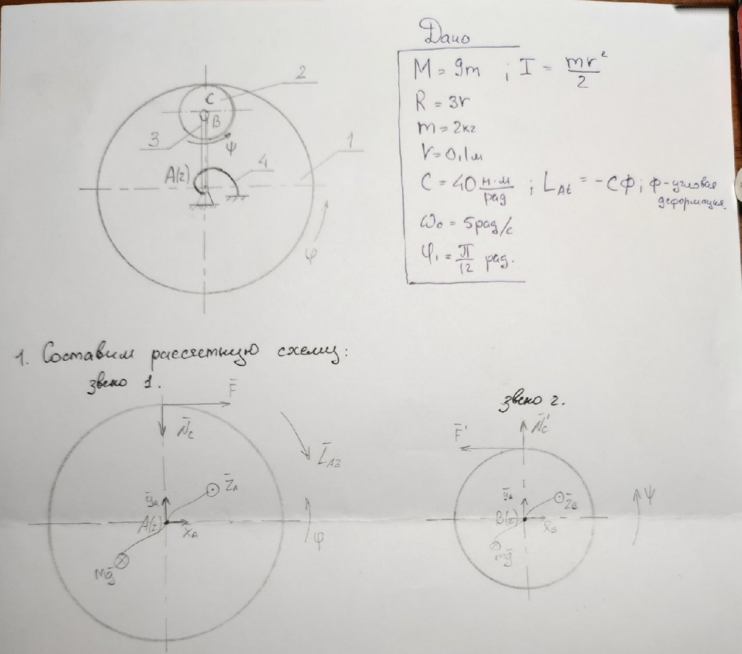 Дано
M = 9m ; I = mr²/2
R = 3r
m = 2кг
r = 0,1м
C = 40 н·м/рад ; L_Az = -CФ ; Ф - угловая деформация.
ω₀ = 5рад/с
φ₁ = π/12 рад.
2
C
B
3
ψ
4
1
A(z)
φ
1. Составим рассчетную схему:
звено 1.
F̄
N̄c
L̄Az
ȳA
Z̄A
A(z)
X̄A
φ
Mḡ
звено 2.
N̄c'
F̄'
ȳB
Z̄B
B(z)
X̄B
ψ
mḡ